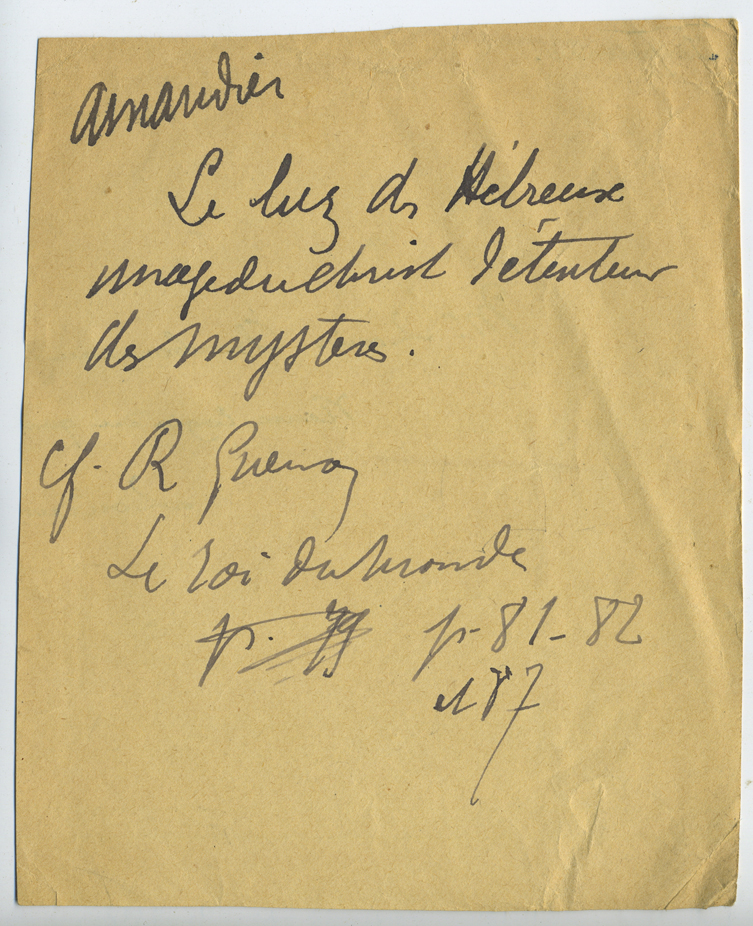 Amandier
Le luz des Hébreux
image du Christ détenteur
des mystères.
cf. R Guenon
Le roi du monde
p. 79 p. 81-82
et 87